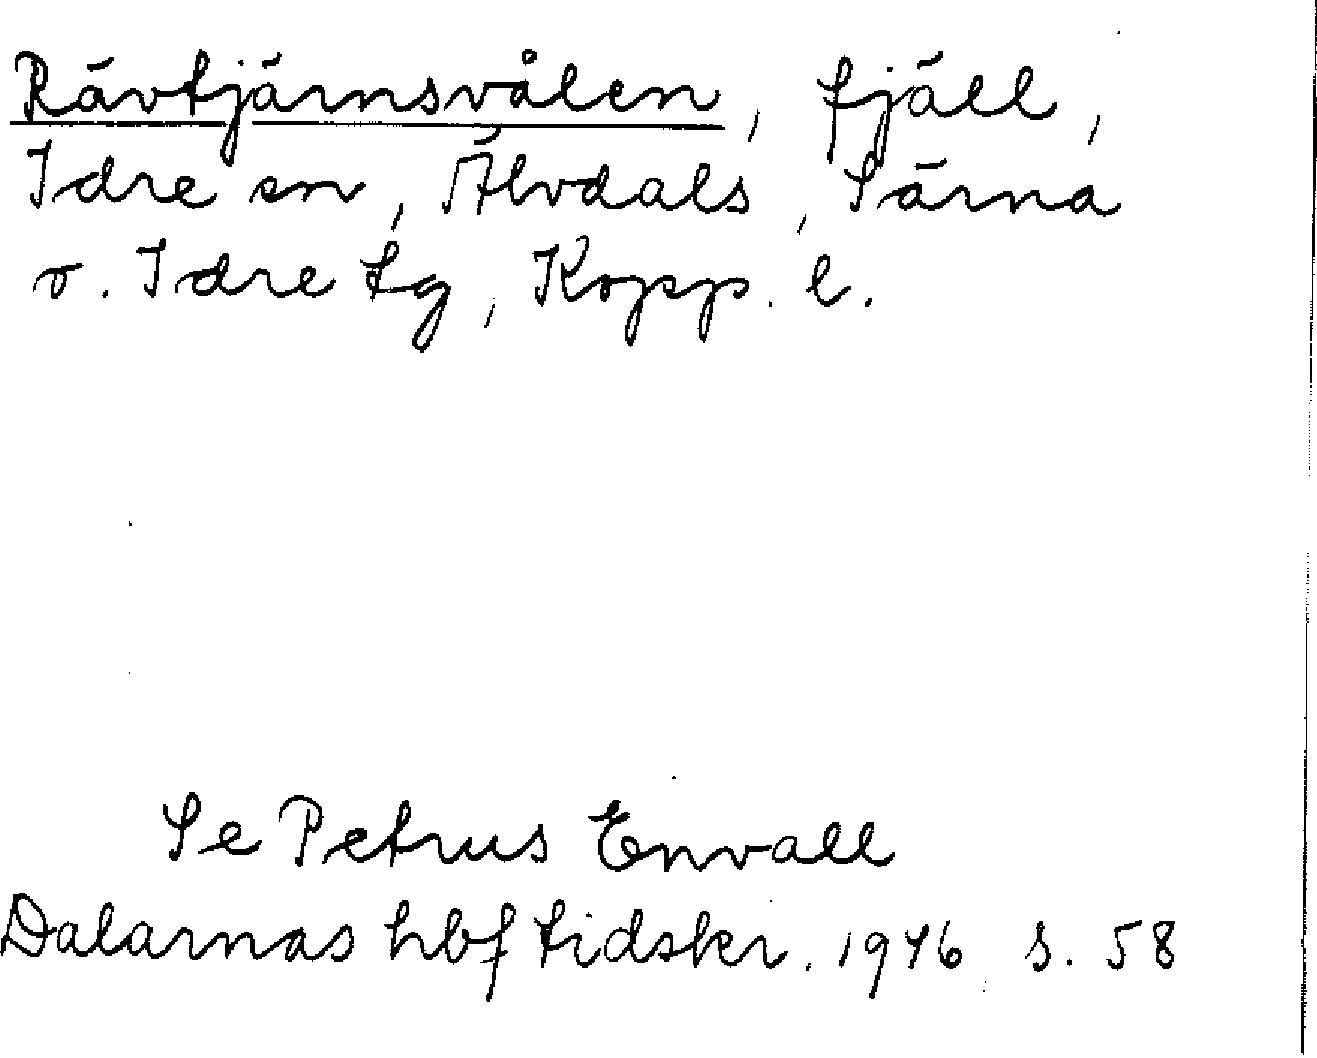 Rävtjärnsvålen, fjäll,
Idre sn, Älvdals, Särna
o. Idre tg, Kopp. l.
Se Petrus Envall
Dalarnas hbf tidskr. 1946 s. 58